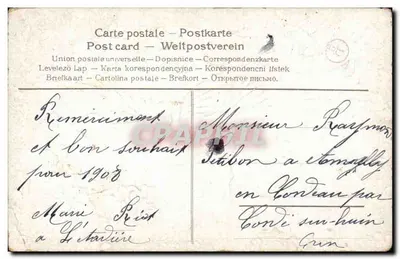 Carte postale – Postkarte
Post card – Weltpostverein
Union postale universelle – Dopisnice – Correspondenzkarte
Levelező Lap – Karta korespondencyjna – Korespondenční listek
Brefkaart – Cartolina postale – Brefkort – Открытое письмо.
Remerciment
et bon souhait
pour 1908
Marie
a
Monsieur Raymon
Petibon a
en Condeau par
Condé sur-huin
Orn